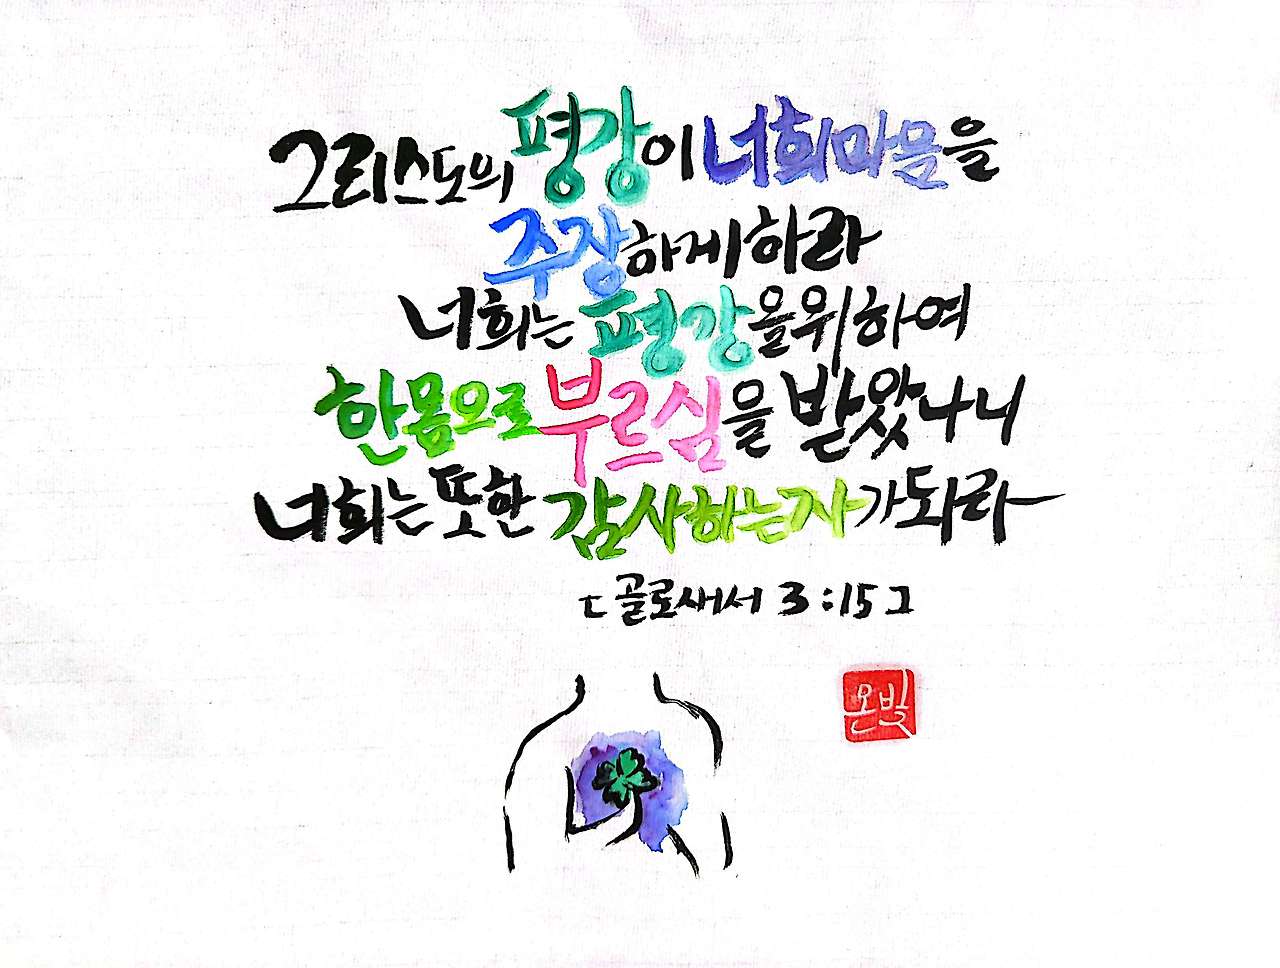 그리스도의 평강이 너희 마음을
주장하게 하라
너희는 평강을 위하여
한 몸으로 부르심을 받았나니
너희는 또한 감사하는 자가 되라
[골로새서 3:15]
은빛